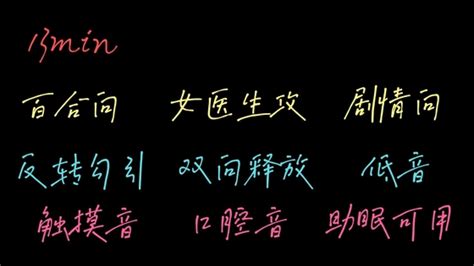 13min
百合向 女医生攻 剧情向
反转勾引 双向释放 低音
触摸音 口腔音 助眠可用